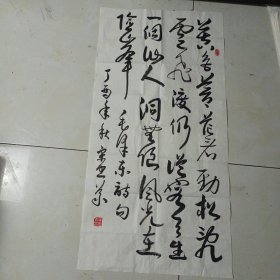 暮色苍茫看劲松乱
云飞渡仍从容天生
一个仙人洞无限风光在
险峰 毛泽东诗句
丁酉年秋